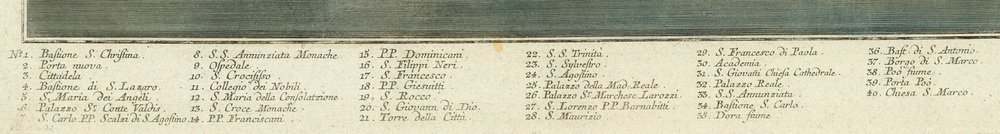 Nº 1. Bastione S. Christina
2. Porta nuova.
3. Cittadela
4. Bastione di S. Lazaro.
5. S. Maria dei Angeli.
6. Palazzo Sr. Conte Valdis.
7. S. Carlo P.P. Scalzi di S. Agostino.
8. S.S. Annunziata Monache.
9. Ospedale.
10. S. Crocifisso
11. Collegio dei Nobili
12. S. Maria della Consolatzione.
13. S. Croce Monache.
14. P.P. Franciscani.
15. P.P. Domenicani.
16. S. Filippi Neri.
17. S. Francesco.
18. P.P. Giesuitti
19. S. Rocco.
20. S. Giovann. di Dio.
21. Torre della Città.
22. S.S. Trinita.
23. S. Sylvestro.
24. S. Agostino.
25. Palazzo della Mad. Reale.
26. Palazzo Sr. Marchese Larozzi.
27. S. Lorenzo P.P. Barnabitti.
28. S. Maurizio
29. S. Francesco di Paola.
30. Academia.
31. S. Giovanni Chiesa Cathedrale.
32. Palazzo Reale.
33. S.S. Annunziata.
34. Bastione S. Carlo.
35. Dora fiume.
36. Bast. di S. Antonio.
37. Borgo di S. Marco.
38. Poò fiume.
39. Porta Poò.
40. Chiesa S. Marco.